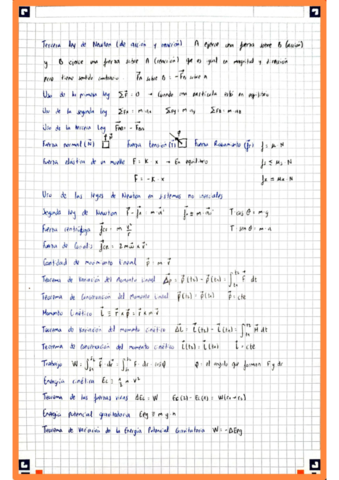 Tercera ley de Newton (de acción y reacción) A ejerce una fuerza sobre B (acción)
y B ejerce una fuerza sobre A (reacción) que es igual en magnitud y dirección
pero tiene sentido contrario F⃗A sobre B = -F⃗B sobre A
Uso de la primera ley ΣF⃗ = 0 → Cuando una partícula está en equilibrio
Uso de la segunda ley ΣFx = m·ax ΣFy = m·ay ΣFz = m·az
Uso de la tercera ley F⃗AB = -F⃗BA
Fuerza normal (N⃗) Fuerza Tensión (T⃗) Fuerza Rozamiento (f⃗r) f = μ·N
Fuerza elástica de un muelle F = K·x → En equilibrio
F = -K·x
Uso de las leyes de Newton en sistemas no inerciales
Segunda ley de Newton T cos θ = m·g
Fuerza centrífuga T·sen θ = m
Fuerza de Coriolis
Cantidad de movimiento lineal p⃗ = m·v⃗
Teorema de Variación del Momento Lineal Δp⃗ = p⃗(t2) - p⃗(t1) = ∫ F⃗ dt
Teorema de Conservación del Momento Lineal p⃗(t2) = p⃗(t1) p⃗ = cte
Momento Cinético
Teorema de Variación del momento cinético ΔL⃗ = L⃗(t2) - L⃗(t1) = ∫ M⃗ dt
Teorema de Conservación del momento cinético L⃗(t2) = L⃗(t1) L⃗ = cte
Trabajo φ: el ángulo que forman F y dr
Energía cinética
Teorema de las fuerzas vivas ΔEc = W Ec(2) - Ec(1) = W
Energía potencial gravitatoria Epg = m·g·h
Teorema de Variación de la Energía Potencial Gravitatoria W = -ΔEpg